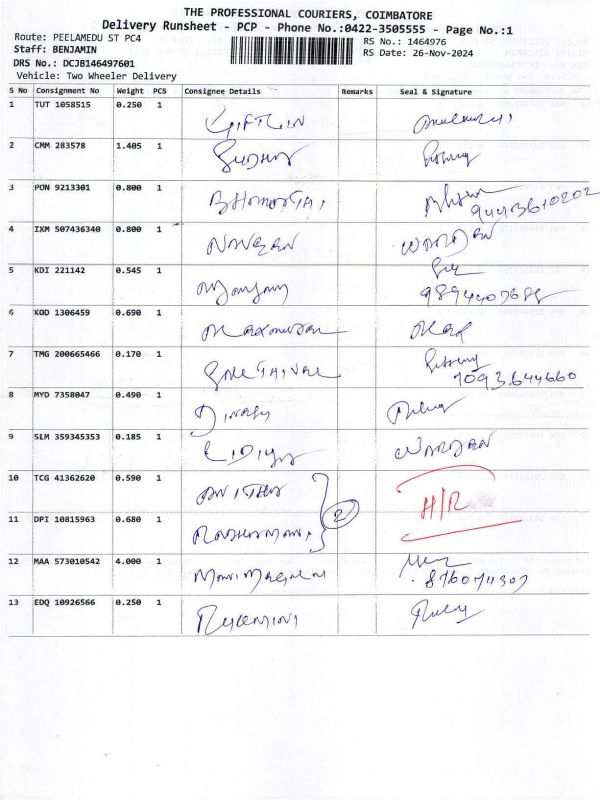 THE PROFESSIONAL COURIERS, COIMBATORE
Delivery Runsheet - PCP - Phone No.:0422-3505555 - Page No.:1
Route: PEELAMEDU ST PC4
RS No.: 1464976
Staff: BENJAMIN
RS Date: 26-Nov-2024
DRS No.: DCJB146497601
Vehicle: Two Wheeler Delivery
S No Consignment No Weight PCS Consignee Details Remarks Seal & Signature
1 TUT 1058515 0.250 1 GIFTLIN
2 CMM 283578 1.405 1 SUDHA
3 PON 9213301 0.800 1 BHARATHI 9443610202
4 IXM 507436340 0.800 1 NAVEEN WARDEN
5 KDI 221142 0.545 1
6 KOD 1306459 0.690 1
7 TMG 200665466 0.170 1
8 MYD 7358047 0.490 1 DINESH
9 SLM 359345353 0.185 1 LIDIYA WARDEN
10 TCG 41362620 0.590 1 ANITHA
2 H/R
11 DPI 10815963 0.680 1
12 MAA 573010542 4.000 1 MANIMEGALAI
13 EDQ 10926566 0.250 1 RUKMINI